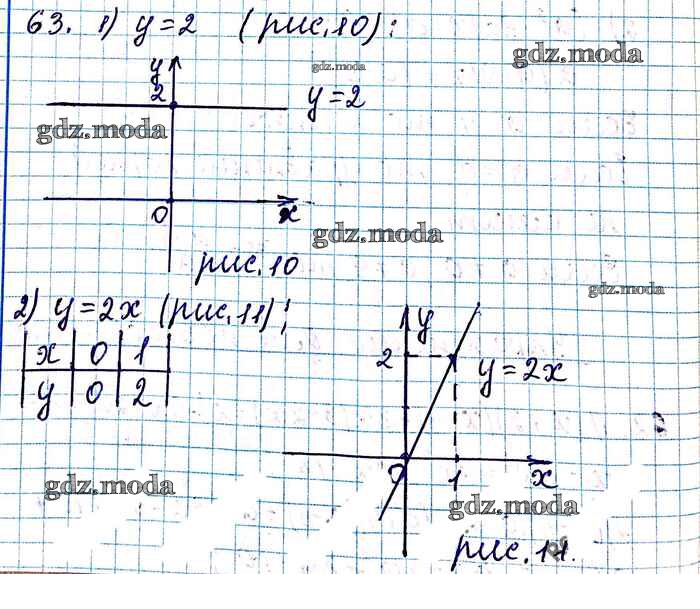 63. 1) y=2 (рис.10);
gdz.moda
gdz.moda
y
2
y=2
gdz.moda
0
x
gdz.moda
рис.10
gdz.moda
2) y=2x (рис.11);
x 0 1
y 0 2
y
2
y=2x
0
1
x
gdz.moda
gdz.moda
рис.11.